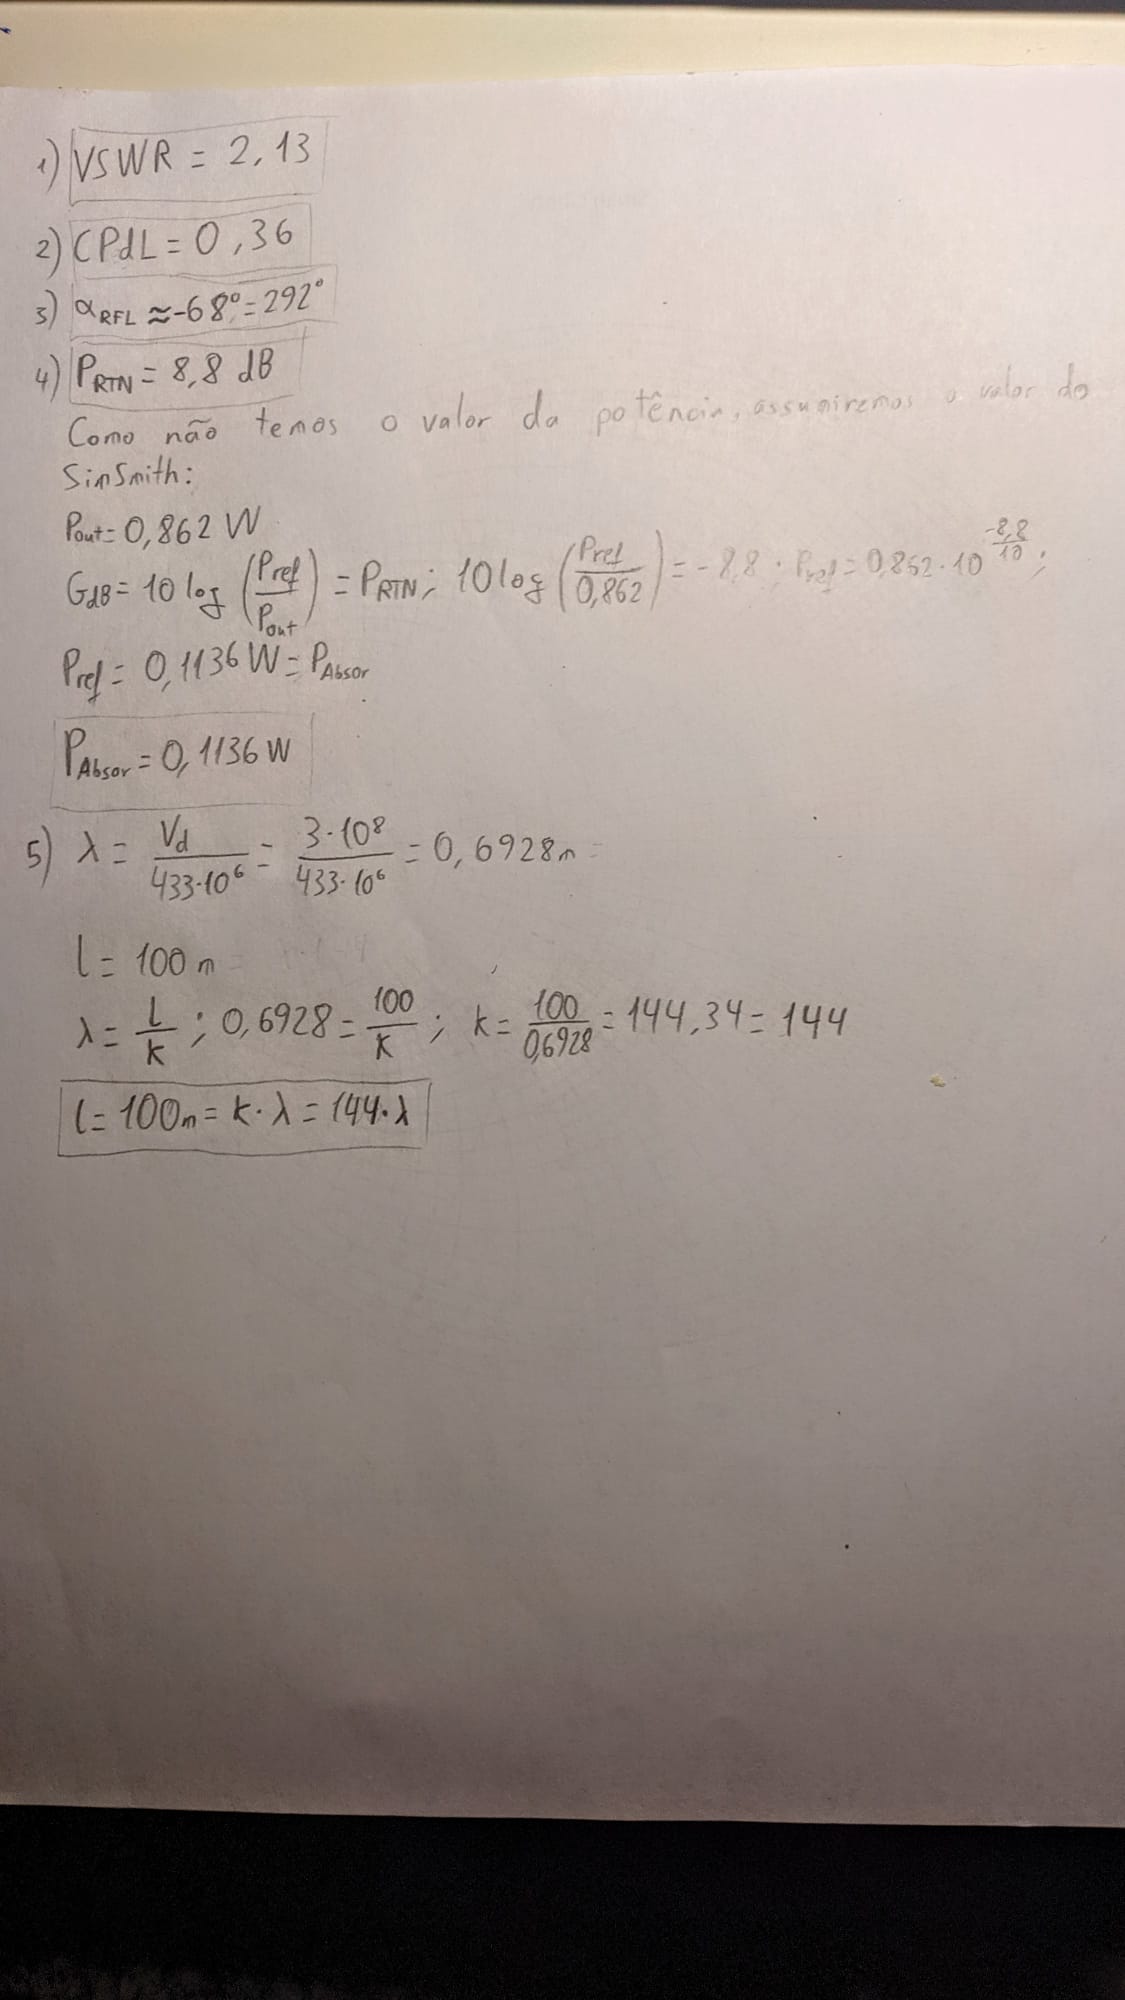 1) VSWR = 2,13
2) CPdL = 0,36
3) αRFL ≈ -68° = 292°
4) PRTN = 8,8 dB
Como não temos o valor da potência, assumiremos o valor do
SimSmith:
Pout = 0,862 W
GdB = 10 log (Pref/Pout) = PRTN; 10 log (Pref/0,862) = -8,8; Pref = 0,862·10^(-8,8/10);
Pref = 0,1136 W = PAbsor
PAbsor = 0,1136 W
5) λ = Vd/433·10⁶ = 3·10⁸/433·10⁶ = 0,6928m =
l = 100 m
λ = l/k ; 0,6928 = 100/k ; k = 100/0,6928 = 144,34 = 144
l = 100m = k·λ = 144·λ